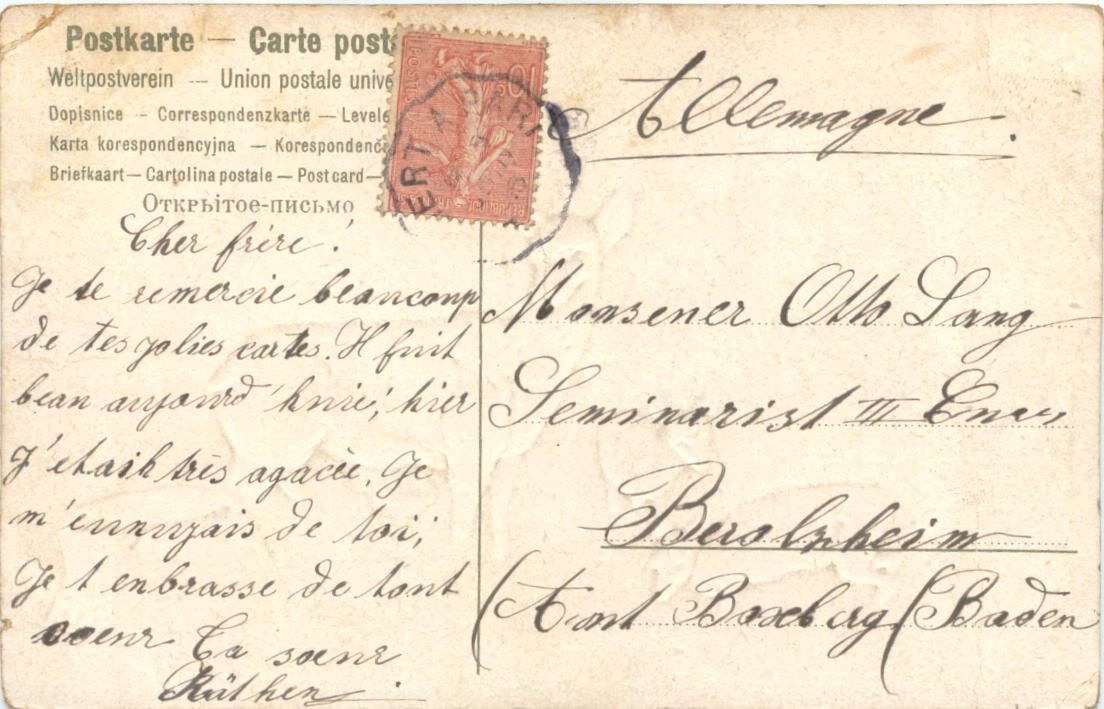 Postkarte — Carte posta
Weltpostverein — Union postale unive
Dopisnice – Correspondenzkarte — Levele
Karta korespondencyjna — Korespondenč
Briefkaart — Cartolina postale — Post card —
Открьітое-письмо
POSTE
10c
REPUBLIQUE
ERT A PARI
Allemagne.
Cher frère!
Je te remercie beaucoup
de tes jolies cartes. Il fait
beau aujourd'huie; hier
J'etaih très agacée. Je
m'ennuyais de toi;
Je t enbrasse de tout
coeur Ta soeur
Käthen.
Monsener Otto Lang
Seminarist III
Berolzheim
(Amt Boxberg (Baden